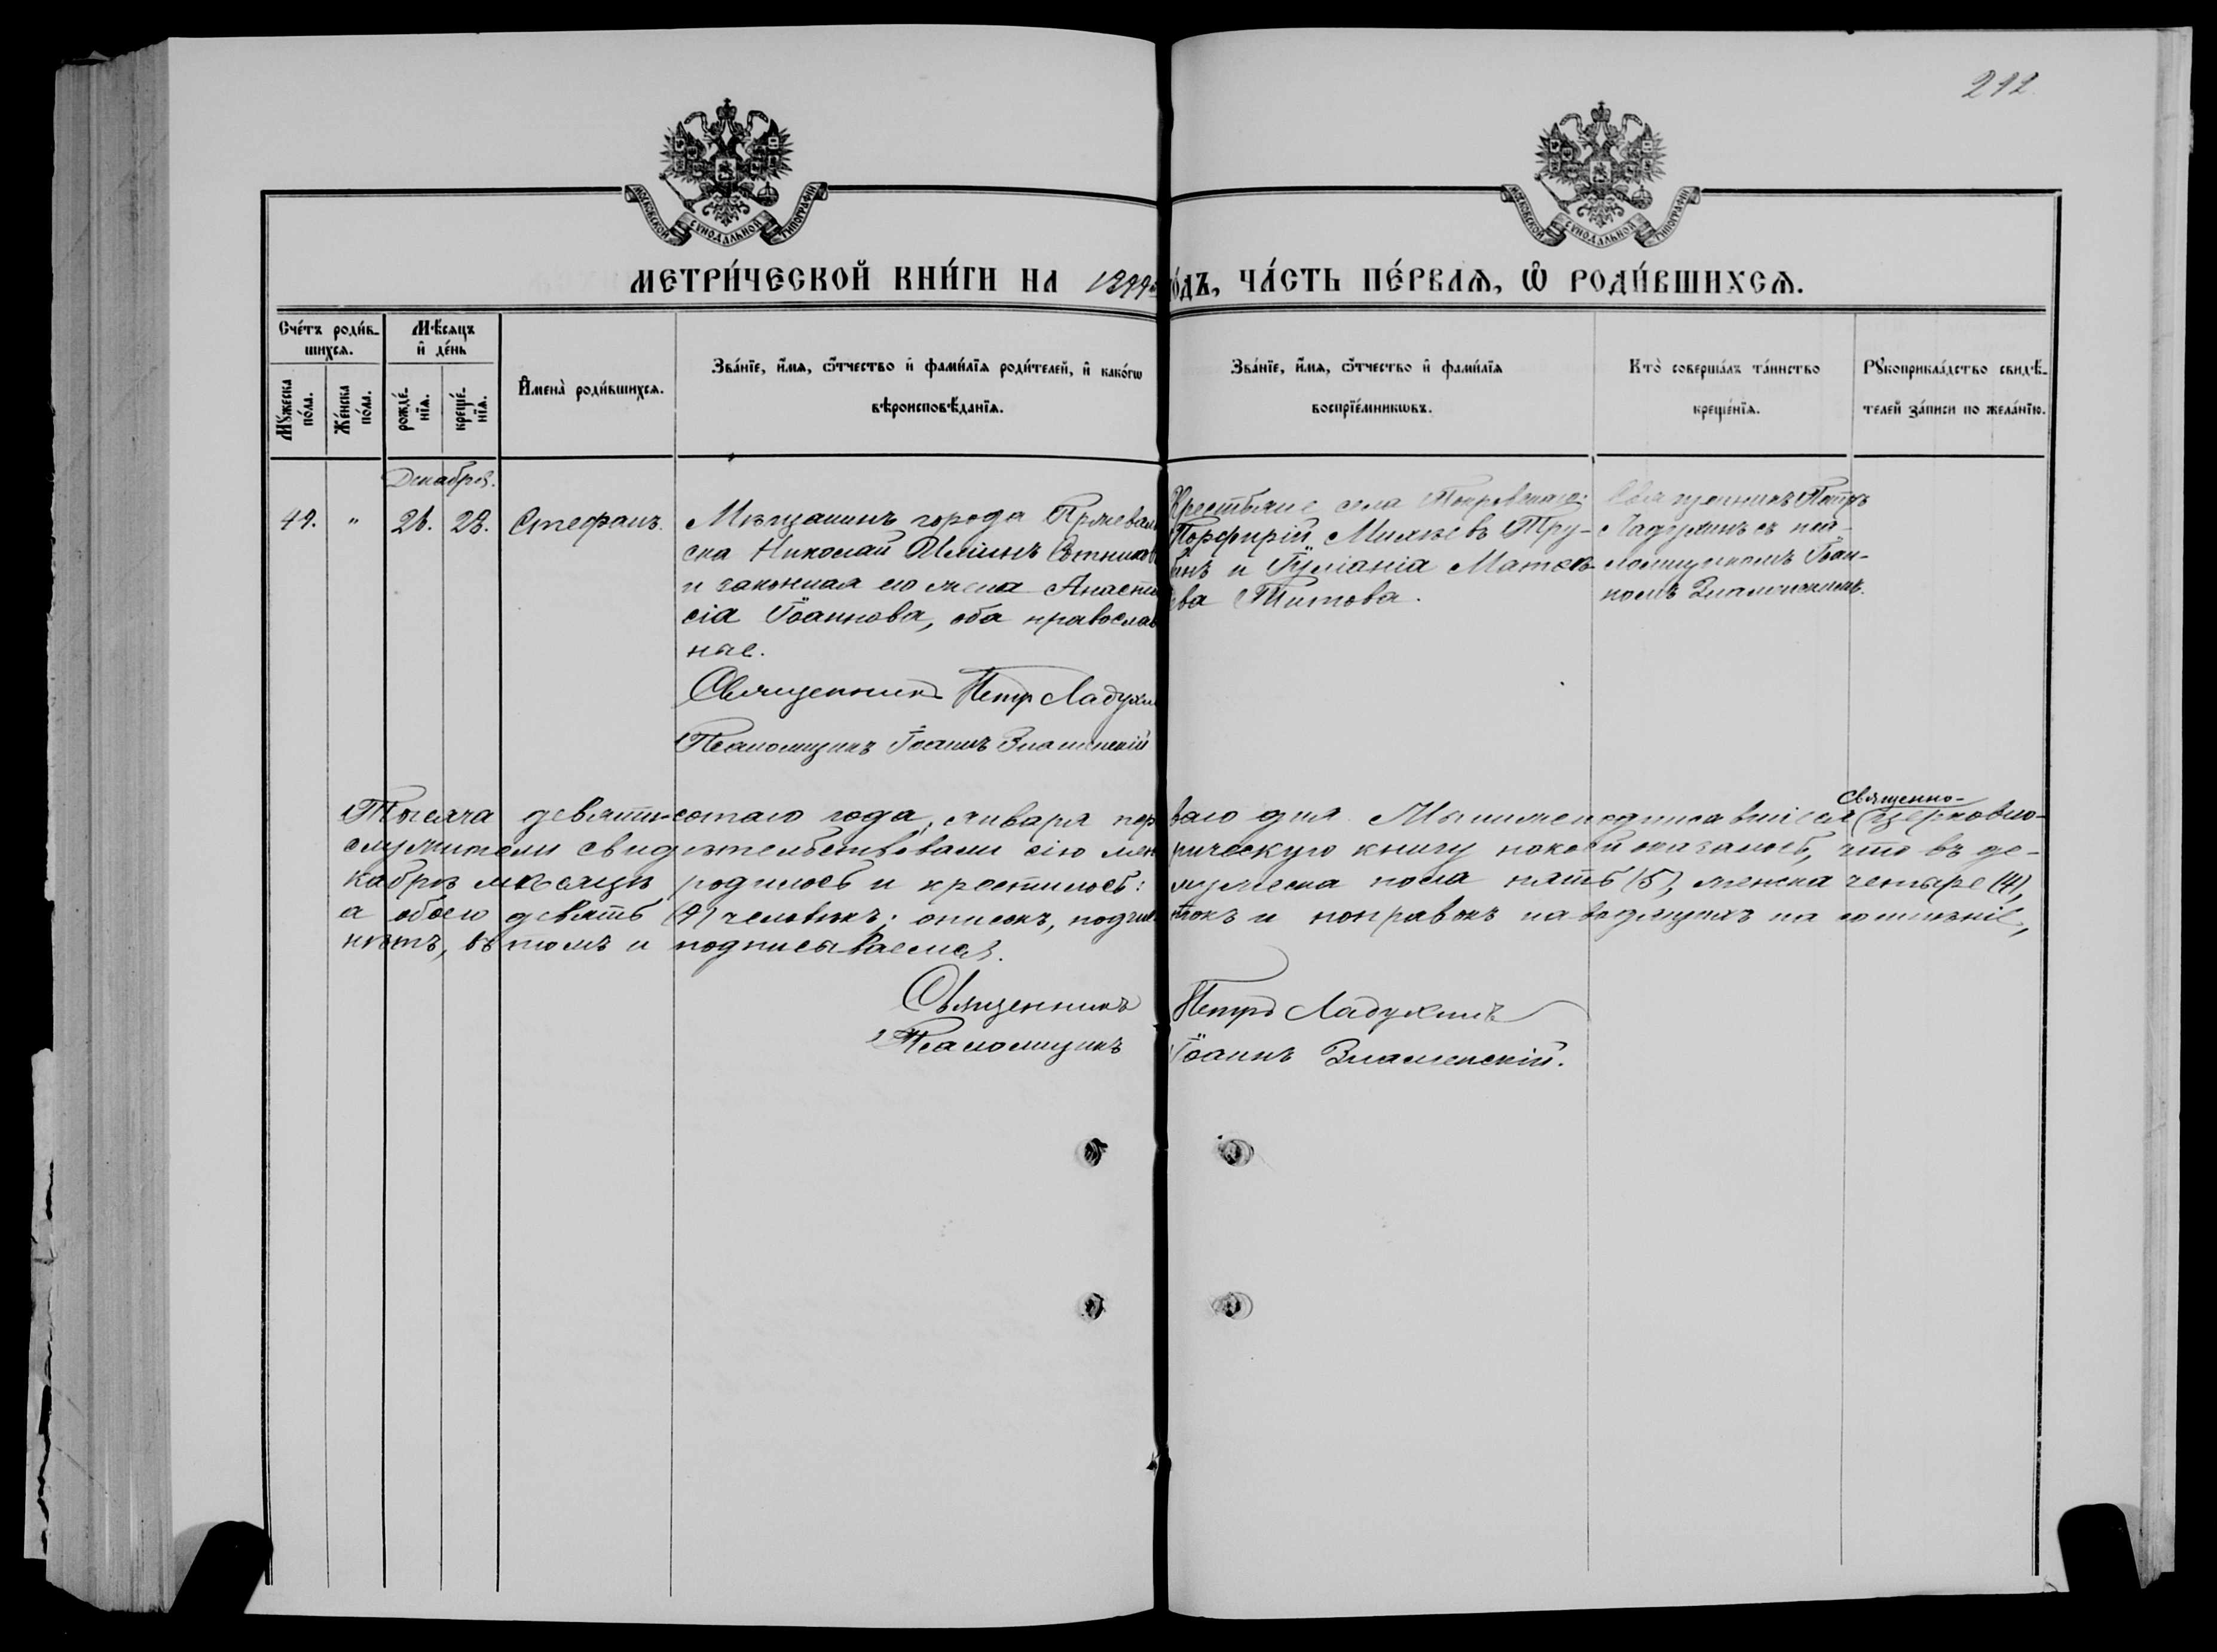 212.
МОСКОВСКОЙ СѴНОДАЛЬНОЙ ТИПОГРАФІИ
МОСКОВСКОЙ СѴНОДАЛЬНОЙ ТИПОГРАФІИ
МЕТРИ́ЧЕСКОЙ КНИ́ГИ НА 1899 го́дъ, ЧА́СТЬ ПЕ́РВАѦ, Ѽ РОДИ́ВШИХСѦ.
Сче́тъ роди́в-
шихсѧ.
Мѣ́сѧцъ
и҆ де́нь
Мꙋ́жеска
по́ла.
Же́нска
по́ла.
рожде́-
нїѧ.
креще́-
нїѧ.
И҆мена̀ роди́вшихсѧ.
Зва́нїе, и҆́мѧ, ѻ҆́тчество и҆ фами́лїѧ роди́телей, и҆ како́гѡ
вѣроисповѣ́данїѧ.
Зва́нїе, и҆́мѧ, ѻ҆́тчество и҆ фами́лїѧ
воспрїе́мникѡвъ.
Кто̀ соверша́лъ та́инство
креще́нїѧ.
Рꙋкоприкла́дство свидѣ́-
телей за́писи по жела́нїю.
Декабрь.
49. " 26. 28. Стефанъ.
Мѣщанинъ города Пржеваль
ска Николай Ильинъ Сотников
и законная его жена Анаста
сія Іоаннова, оба православ
ные.
Священникъ Петр Ладухин
Псаломщикъ Іоаннъ Знаменскій
Крестьяне села Покровскаго:
Порфирій Михѣевъ Тру-
бинъ и Іуліанія Матѳѣ-
ева Титова.
Священникъ Петръ
Ладухинъ съ пса-
ломщикомъ Іоан-
номъ Знаменскимъ.
Тысяча девятисотаго года, января перваго дня. Мы нижеподписавшіеся Священно- церковно-
служители свидѣтельствовали сію метрическую книгу по коей оказалось, что въ де-
кабрѣ мѣсяцѣ родилось и крестилось: мужеска пола пять (5), женска четыре (4),
а обоего девять (9) человѣкъ; описокъ, подчистокъ и поправокъ наводящихъ на сомнѣніе,
нѣтъ, въ томъ и подписываемся.
Священникъ Петръ Ладухинъ
Псаломщикъ Іоаннъ Знаменскій.